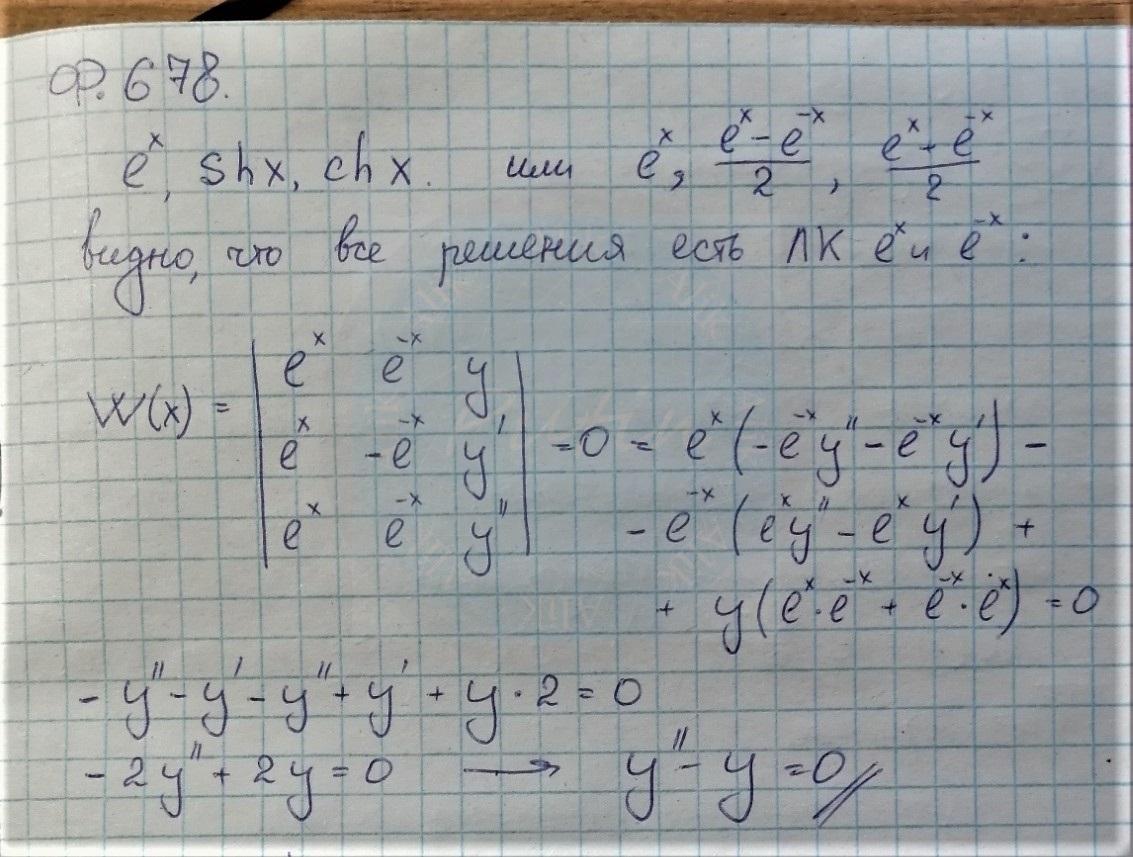 Ф. 678.
eˣ, shx, chx. или eˣ, (eˣ - e⁻ˣ)/2, (eˣ + e⁻ˣ)/2
видно, что все решения есть ЛК eˣ и e⁻ˣ:
W(x) = | eˣ e⁻ˣ y |
| eˣ -e⁻ˣ y' | = 0 = eˣ(-e⁻ˣy'' - e⁻ˣy') -
| eˣ e⁻ˣ y'' | - e⁻ˣ(eˣy'' - eˣy') +
+ y(eˣ·e⁻ˣ + e⁻ˣ·eˣ) = 0
- y'' - y' - y'' + y' + y·2 = 0
- 2y'' + 2y = 0 → y'' - y = 0 //